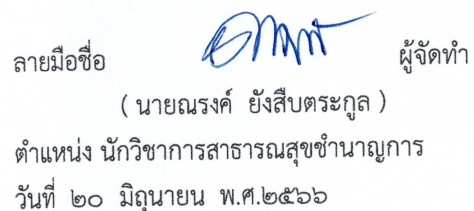 ลายมือชื่อ ผู้จัดทำ
( นายณรงค์ ยังสืบตระกูล )
ตำแหน่ง นักวิชาการสาธารณสุขชำนาญการ
วันที่ ๒๐ มิถุนายน พ.ศ.๒๕๖๖